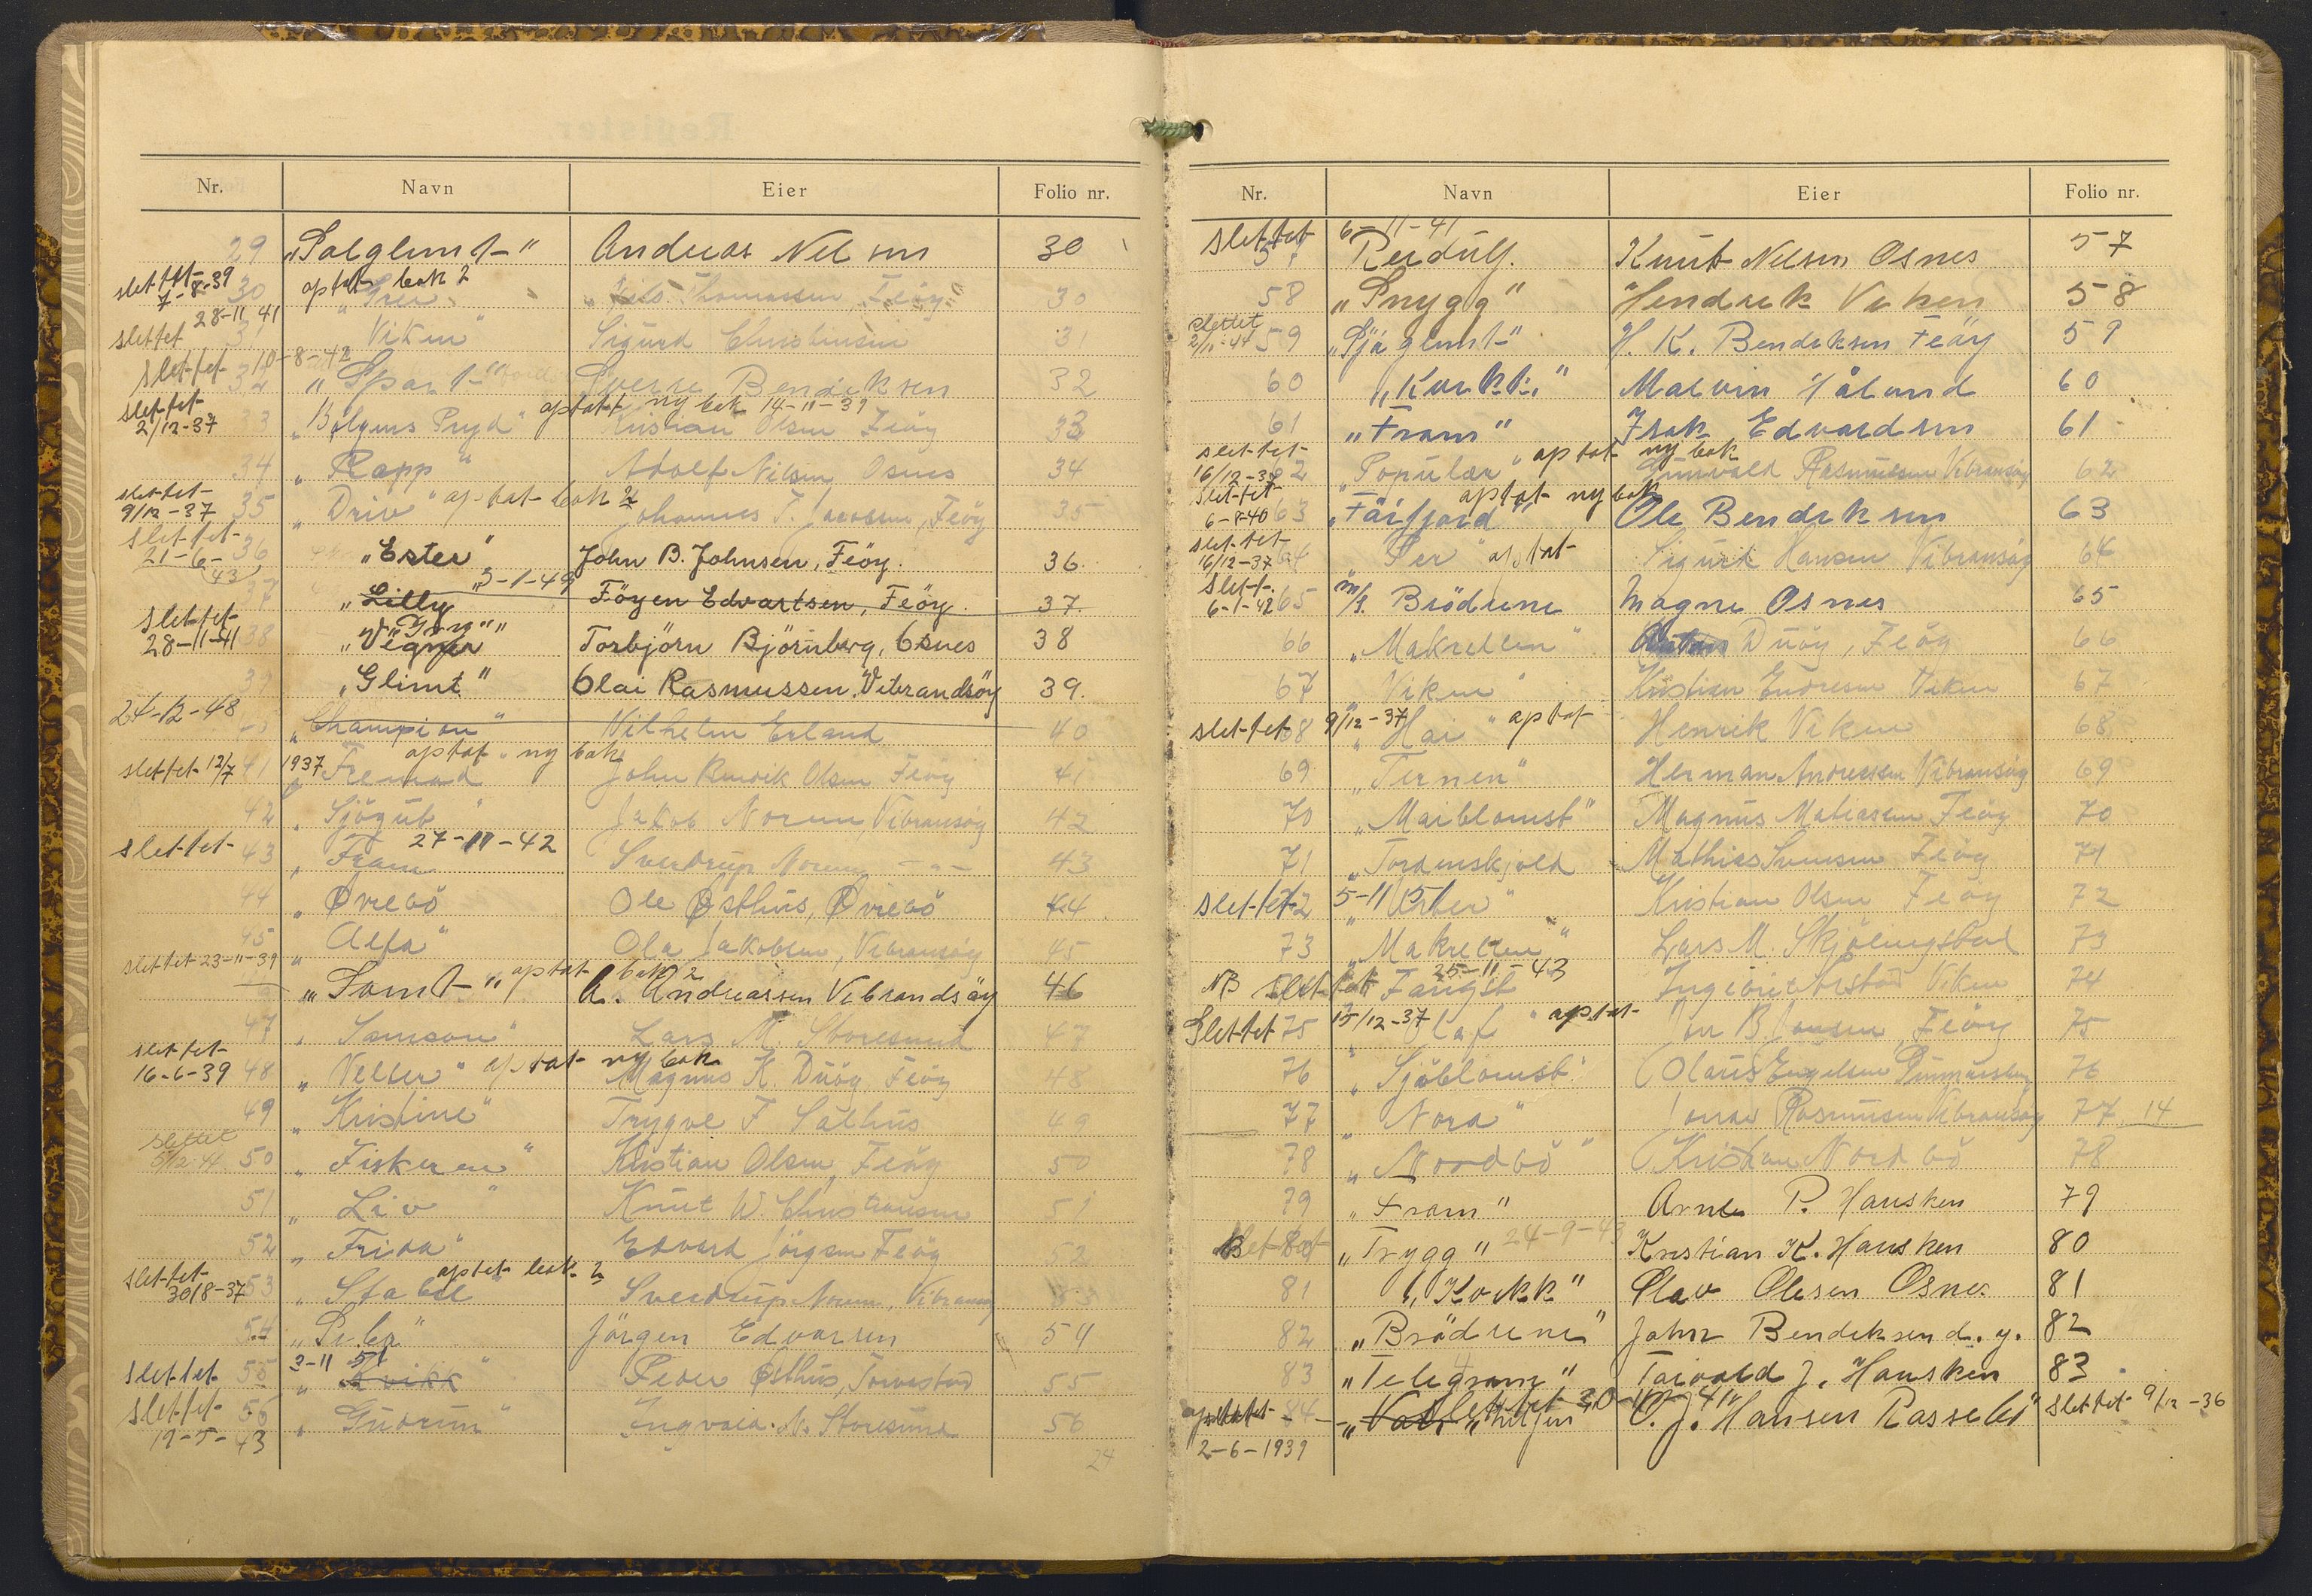 Nr. Navn Eier Folio nr.
29 „Solglimt" Andreas Nilsen 30
slettet 7-8-39 30 optat bok 2 „Grei" Nils Thomassen, Feöy 30
slettet 28-11 41 31 Viken" Sigurd Christensen 31
Slettet 10-8-42 32 „Spart" Sverre Bendiksen 32
slettet 2/12-37 33 „Bölgens Pryd" optatt ny bok 14-11-39 Kristian Olsen Feöy 33
34 „Rapp" Adolf Nilsen Osnes 34
slettet 9/12-37 35 „Driv" optat bok 2 Johannes T. Jacobsen, Feöy 35
slettet 21-6-43 36 „Ester" John B. Johnsen, Feöy. 36.
37 „Lilly" 3-1-49 Föyen Edvartsen, Feöy. 37.
Slettet 28-11-41 38 „Vegga" Torbjörn Björnberg, Osnes 38
39 „Glimt" Olai Rasmussen, Vibrandsöy 39.
24-12-48 40 „Champion" Vilhelm Erland 40
slettet 12/7 1937 41 „Fremad" optat ny bok John Henrik Olsen Feöy 41
42 „Sjögut" Jakob Norum Vibransöy 42
slettet 43 „Fram" 27-11-42 Sverdrup Norum -"- 43
44 „Øvrebö Ole Østhus, Øvrebö 44.
45 „Alfa" Ola Jakobsen, Vibransöy 45
slettet 23-11-39 „Tomt" optat bok 2 A. Andreassen Vibrandsöy 46
47 „Samson" Lars M. Storesund 47
slettet 16-6-39 48 „Velter" optat ny bok Magnus K. Duöy Feöy 48
49 „Kristine" Trygve F Salhus 49
slettet 5/12-44 50 „Fiskeren" Kristian Olsen, Feöy 50
51 „Liv" Knut W. Christiansen 51
52 „Frida" Edvard Jörgsen Feöy 52
slettet 30/8-37 53 „Stabil" optet bok 2 Sverdrup Norum, Vibransöy 53
54 „Luba" Jörgen Edvarsen 54
slettet 55 2-11 51 „Kvikk" Peder Østhus, Torvestad 55
slettet 19-5-43 56 „Gudrun" Ingvald M. Storesund 56
24
Nr. Navn Eier Folio nr.
slettet 57 6-11-41 Reidulf. Knut Nilsen Osnes 57
58 „Snygg" Hendrik Viken 58
slettet 2/11-44 59 „Sjöglimt" H. K. Bendiksen Feöy 59
60 „Kvikk" Malvin Håland 60
61 „Fram" Isak Edvardsen 61
slettet 16/12-37 62 „Populær" optat ny bok Rasmussen Vibransöy 62
Slettet 6-8-40 63 „Färfjord" optat ny bok Ole Bendiksen 63
slettet 16/12-37 64 „Per" optat Sigurd Hansen Vibransöy 64
Slett. 6-1-42 65 m/s. Brödrene Magne Osnes 65
66 „Makrellen" Duöy, Feöy 66
67 „Viken" Kristian Endresen Viken 67
slettet 68 9/12-37 „Hai" optat Henrik Viken 68
69 „Ternen" Herman Andreassen Vibransöy 69
70 „Maiblomst" Magnus Matiassen Feöy 70
71 „Tordenskjold Mathias Svensen Feöy 71
slettet 72 5-11 51 Kristian Olsen Feöy 72
73 „Makrellen" Lars M. Skjölingstad 73
NB slettet Fangst 25-11-43 Viken 74
Slettet 75 15/12-37 „Olaf" optat B. Jensen, Feöy 75
76 „Sjöblomst" Olaus Engelsen 76
77 „Nora" Rasmussen Vibransöy 77 14
78 „Nordbö" Kristian Nordbö 78
79 „Fram" Arne P. Hausken 79
slettet 80 „Trygg" 24-9-43 Kristian K. Hausken 80
81 „Kvikk" Olav Olesen Osnes 81
82 „Brödrene" John Bendiksen d. y. 82
83 „Telegram" Torvald J. Hausken 83
optatt 84 2-6-1939 slettet 30 O. J. Hansen Rassebö slettet 9/12-36